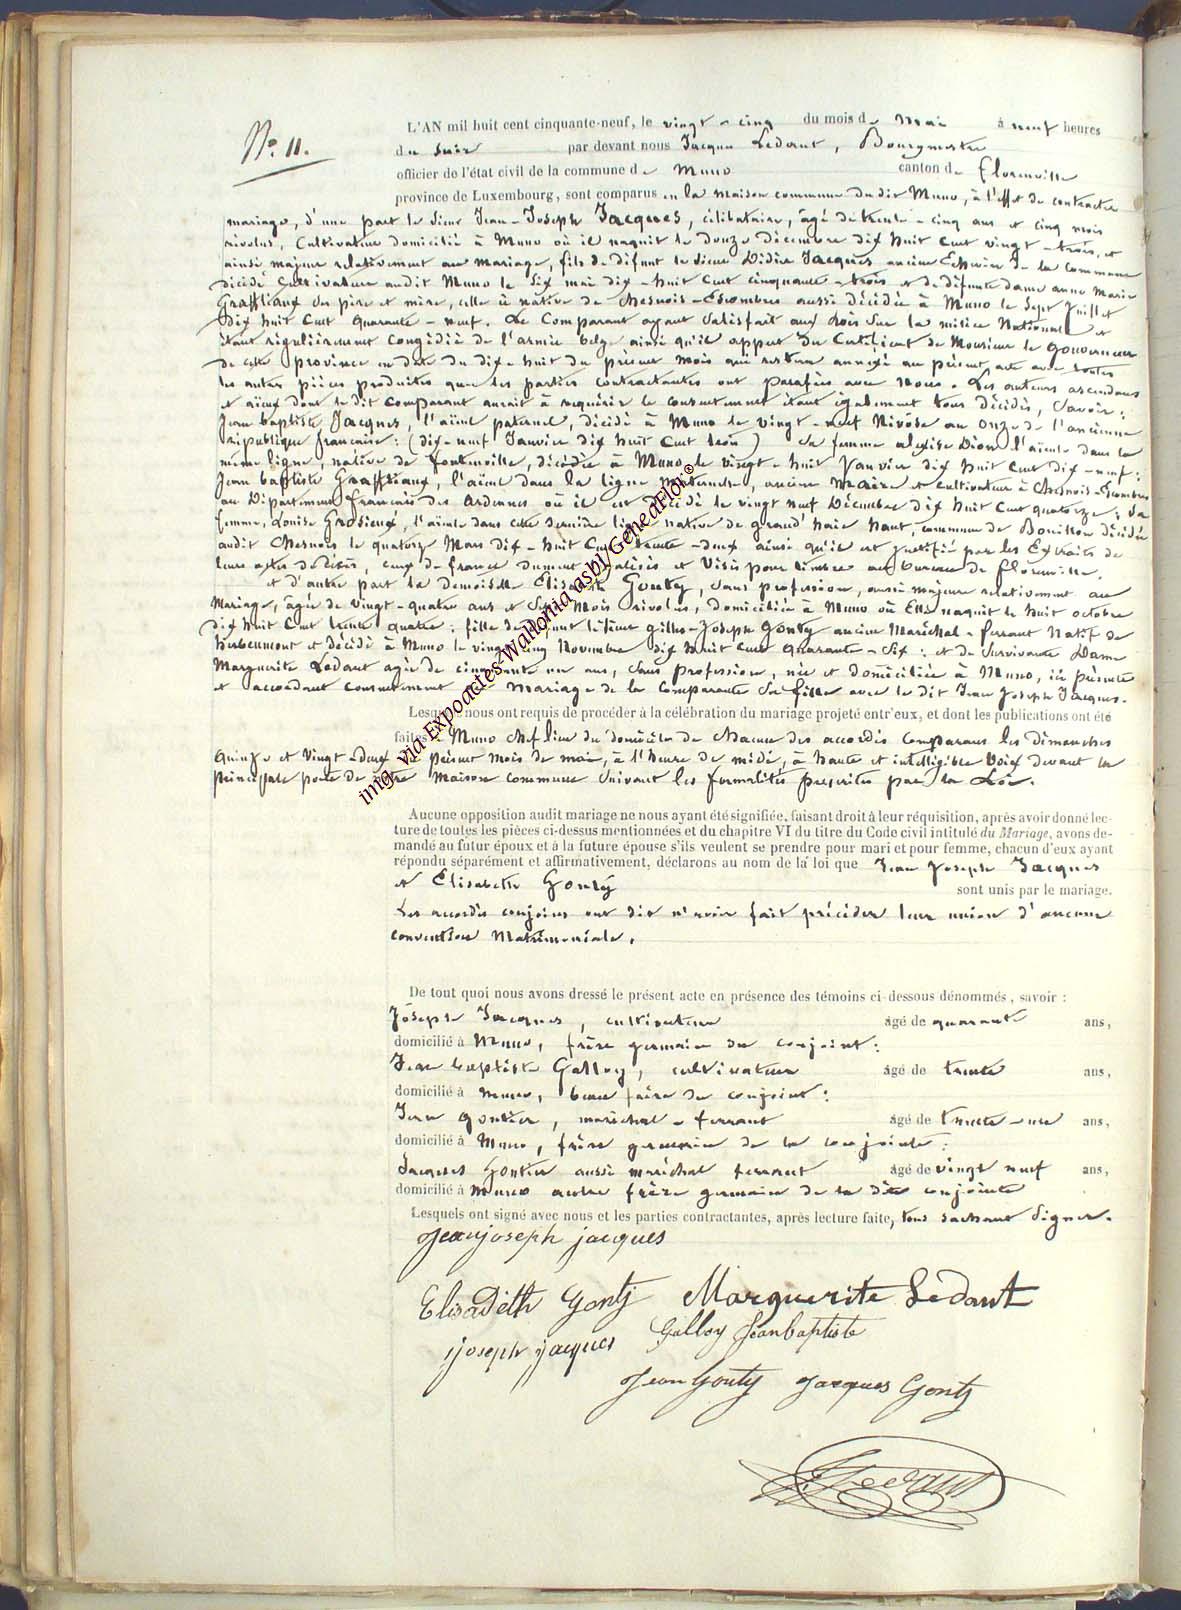 N° 11.
L'AN mil huit cent cinquante-neuf, le vingt-cinq du mois de Mai à neuf heures
du soir par devant nous Jacques Ledant, Bourgmestre
officier de l'état civil de la commune de Muno canton de Florenville
province de Luxembourg, sont comparus en la maison commune du dit Muno, à l'effet de contracter
mariage, d'une part le sieur Jean-Joseph Jacques, célibataire, âgé de trente-cinq ans et cinq mois
révolus, Cultivateur domicilié à Muno où il naquit le douze décembre dix huit cent vingt-trois, et
ainsi majeur relativement au mariage, fils de défunt le sieur Didier Jacques ancien Echevin de la commune
décédé Cultivateur audit Muno le six mai dix-huit cent cinquante-trois et de défunte dame anne Marie
Graffiaux ses père et mère, celle ci native de Chesnois-Escombres aussi décédée à Muno le sept Juillet
dix huit cent quarante-neuf. Le Comparant ayant satisfait aux lois sur la milice National et
étant régulièrement congédié de l'armée belge ainsi qu'il appert du Certificat de Monsieur le Gouverneur
de cette province en date du dix-huit du présent mois qui restera annexé au présent acte avec toutes
les autres pièces produites que les parties contractantes ont parafées avec nous. Les auteurs ascendans
et aïeux dont le dit comparant aurait à requérir le consentement étant également tous décédés, savoir:
Jean baptiste Jacques, l'aïeul paternel, décédé à Muno le vingt-neuf Nivôse an onze de l'ancienne
république française: (dix-neuf Janvier dix huit cent trois) Sa femme Dion l'aïeule dans la
même ligne, native de fontenoille, décédée à Muno le vingt-huit Janvier dix huit cent dix-neuf:
Jean baptiste Graffiaux, l'aïeul dans la ligne Maternelle, ancien Maire et cultivateur à Chesnois-Escombres
au Département français des Ardennes où il est décédé le vingt neuf Décembre dix huit cent quatorze; Sa
femme, Louise Grosieux, l'aïeule dans cette dernière ligne native de grand'haie haut, commune de Bouillon décédée
audit Chesnois le quatorze Mars dix-huit Cent trente-deux ainsi qu'il est justifié par les Extraits de
leurs actes de décès, ceux de france dument légalisés et Visés pour timbre au bureau de florenville.
et d'autre part la demoiselle Elisabeth Gonty, sans profession, aussi majeure relativement au
Mariage, âgée de vingt-quatre ans et Sept Mois révolus, domiciliée à Muno où Elle naquit le huit octobre
dix huit cent trente quatre: fille de défunt le sieur gilles-Joseph Gonty ancien Maréchal-ferrant Natif de
herbeumont et décédé à Muno le vingt cinq Novembre dix huit cent quarante-six: et de Survivante Dame
Marguerite Ledant agée de cinquante un ans, sans profession, née et domiciliée à Muno, ici présente
et accordant consentement au Mariage de la Comparante Sa fille avec le dit Jean Joseph Jacques.
Lesquels nous ont requis de procéder à la célébration du mariage projeté entr'eux, et dont les publications ont été
faites à Muno chef lieu du domicile de chacun des accordés Comparans les dimanches
quinze et vingt-deux du présent mois de mai, à l'heure de midi, à haute et intelligible Voix devant la
principale porte de notre Maison commune Suivant les formalités prescrites par la Loi.
Aucune opposition audit mariage ne nous ayant été signifiée, faisant droit à leur réquisition, après avoir donné lec-
ture de toutes les pièces ci-dessus mentionnées et du chapitre VI du titre du Code civil intitulé du Mariage, avons de-
mandé au futur époux et à la future épouse s'ils veulent se prendre pour mari et pour femme, chacun d'eux ayant
répondu séparément et affirmativement, déclarons au nom de la loi que Jean Joseph Jacques
et Elisabeth Gonty sont unis par le mariage.
Les accordés conjoins ont dit n'avoir fait précéder leur union d'aucune
convention Matrimoniale.
De tout quoi nous avons dressé le présent acte en présence des témoins ci-dessous dénommés, savoir :
Joseph Jacques, cultivateur âgé de quarante ans,
domicilié à Muno, frère germain du conjoint:
Jean baptiste Galloy, cultivateur âgé de trente ans,
domicilié à Muno, beau frère du conjoint:
Jean Gontier, maréchal-ferrant âgé de trente-une ans,
domicilié à Muno, frère germain de la conjointe:
Jacques Gontier aussi maréchal ferrant âgé de vingt neuf ans,
domicilié à Muno autre frère germain de la dite conjointe
Lesquels ont signé avec nous et les parties contractantes, après lecture faite, tous sachant signer.
Jean joseph jacques
Elisabeth Gonty Marguerite Ledant
joseph jacques Galloy Jeanbaptiste
Jean Gonty Jacques Gonty
J Ledant
img. via Expoactes-Wallonia asbl/GeneaFlor ©